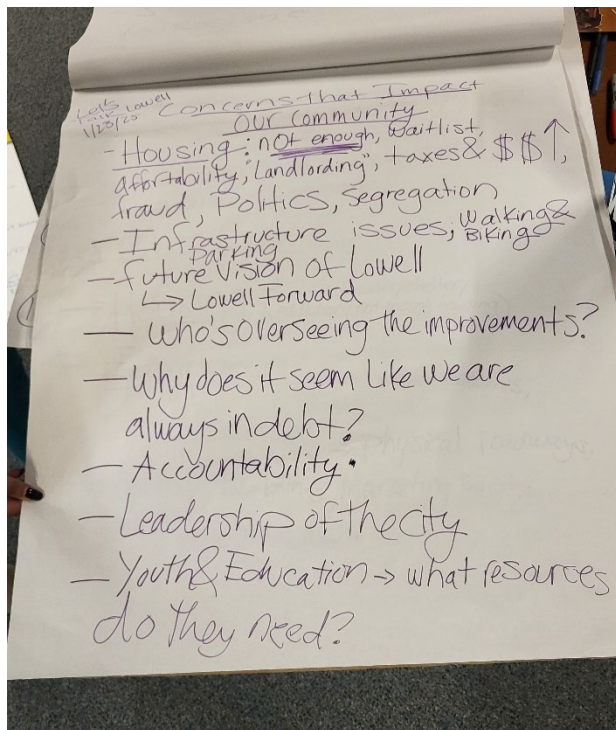 Let's
Talk Lowell
1/28/25
Concerns that Impact
Our Community
- Housing: not enough, waitlist,
affortability, "Landlording", taxes & $$↑,
fraud, Politics, Segregation
- Infrastructure issues, Walking &
Biking
Parking
- future Vision of Lowell
↳ Lowell Forward
— Who's overseeing the improvements?
— Why does it seem like we are
always in debt?
— Accountability.
— Leadership of the city
— Youth & Education → what resources
do they need?